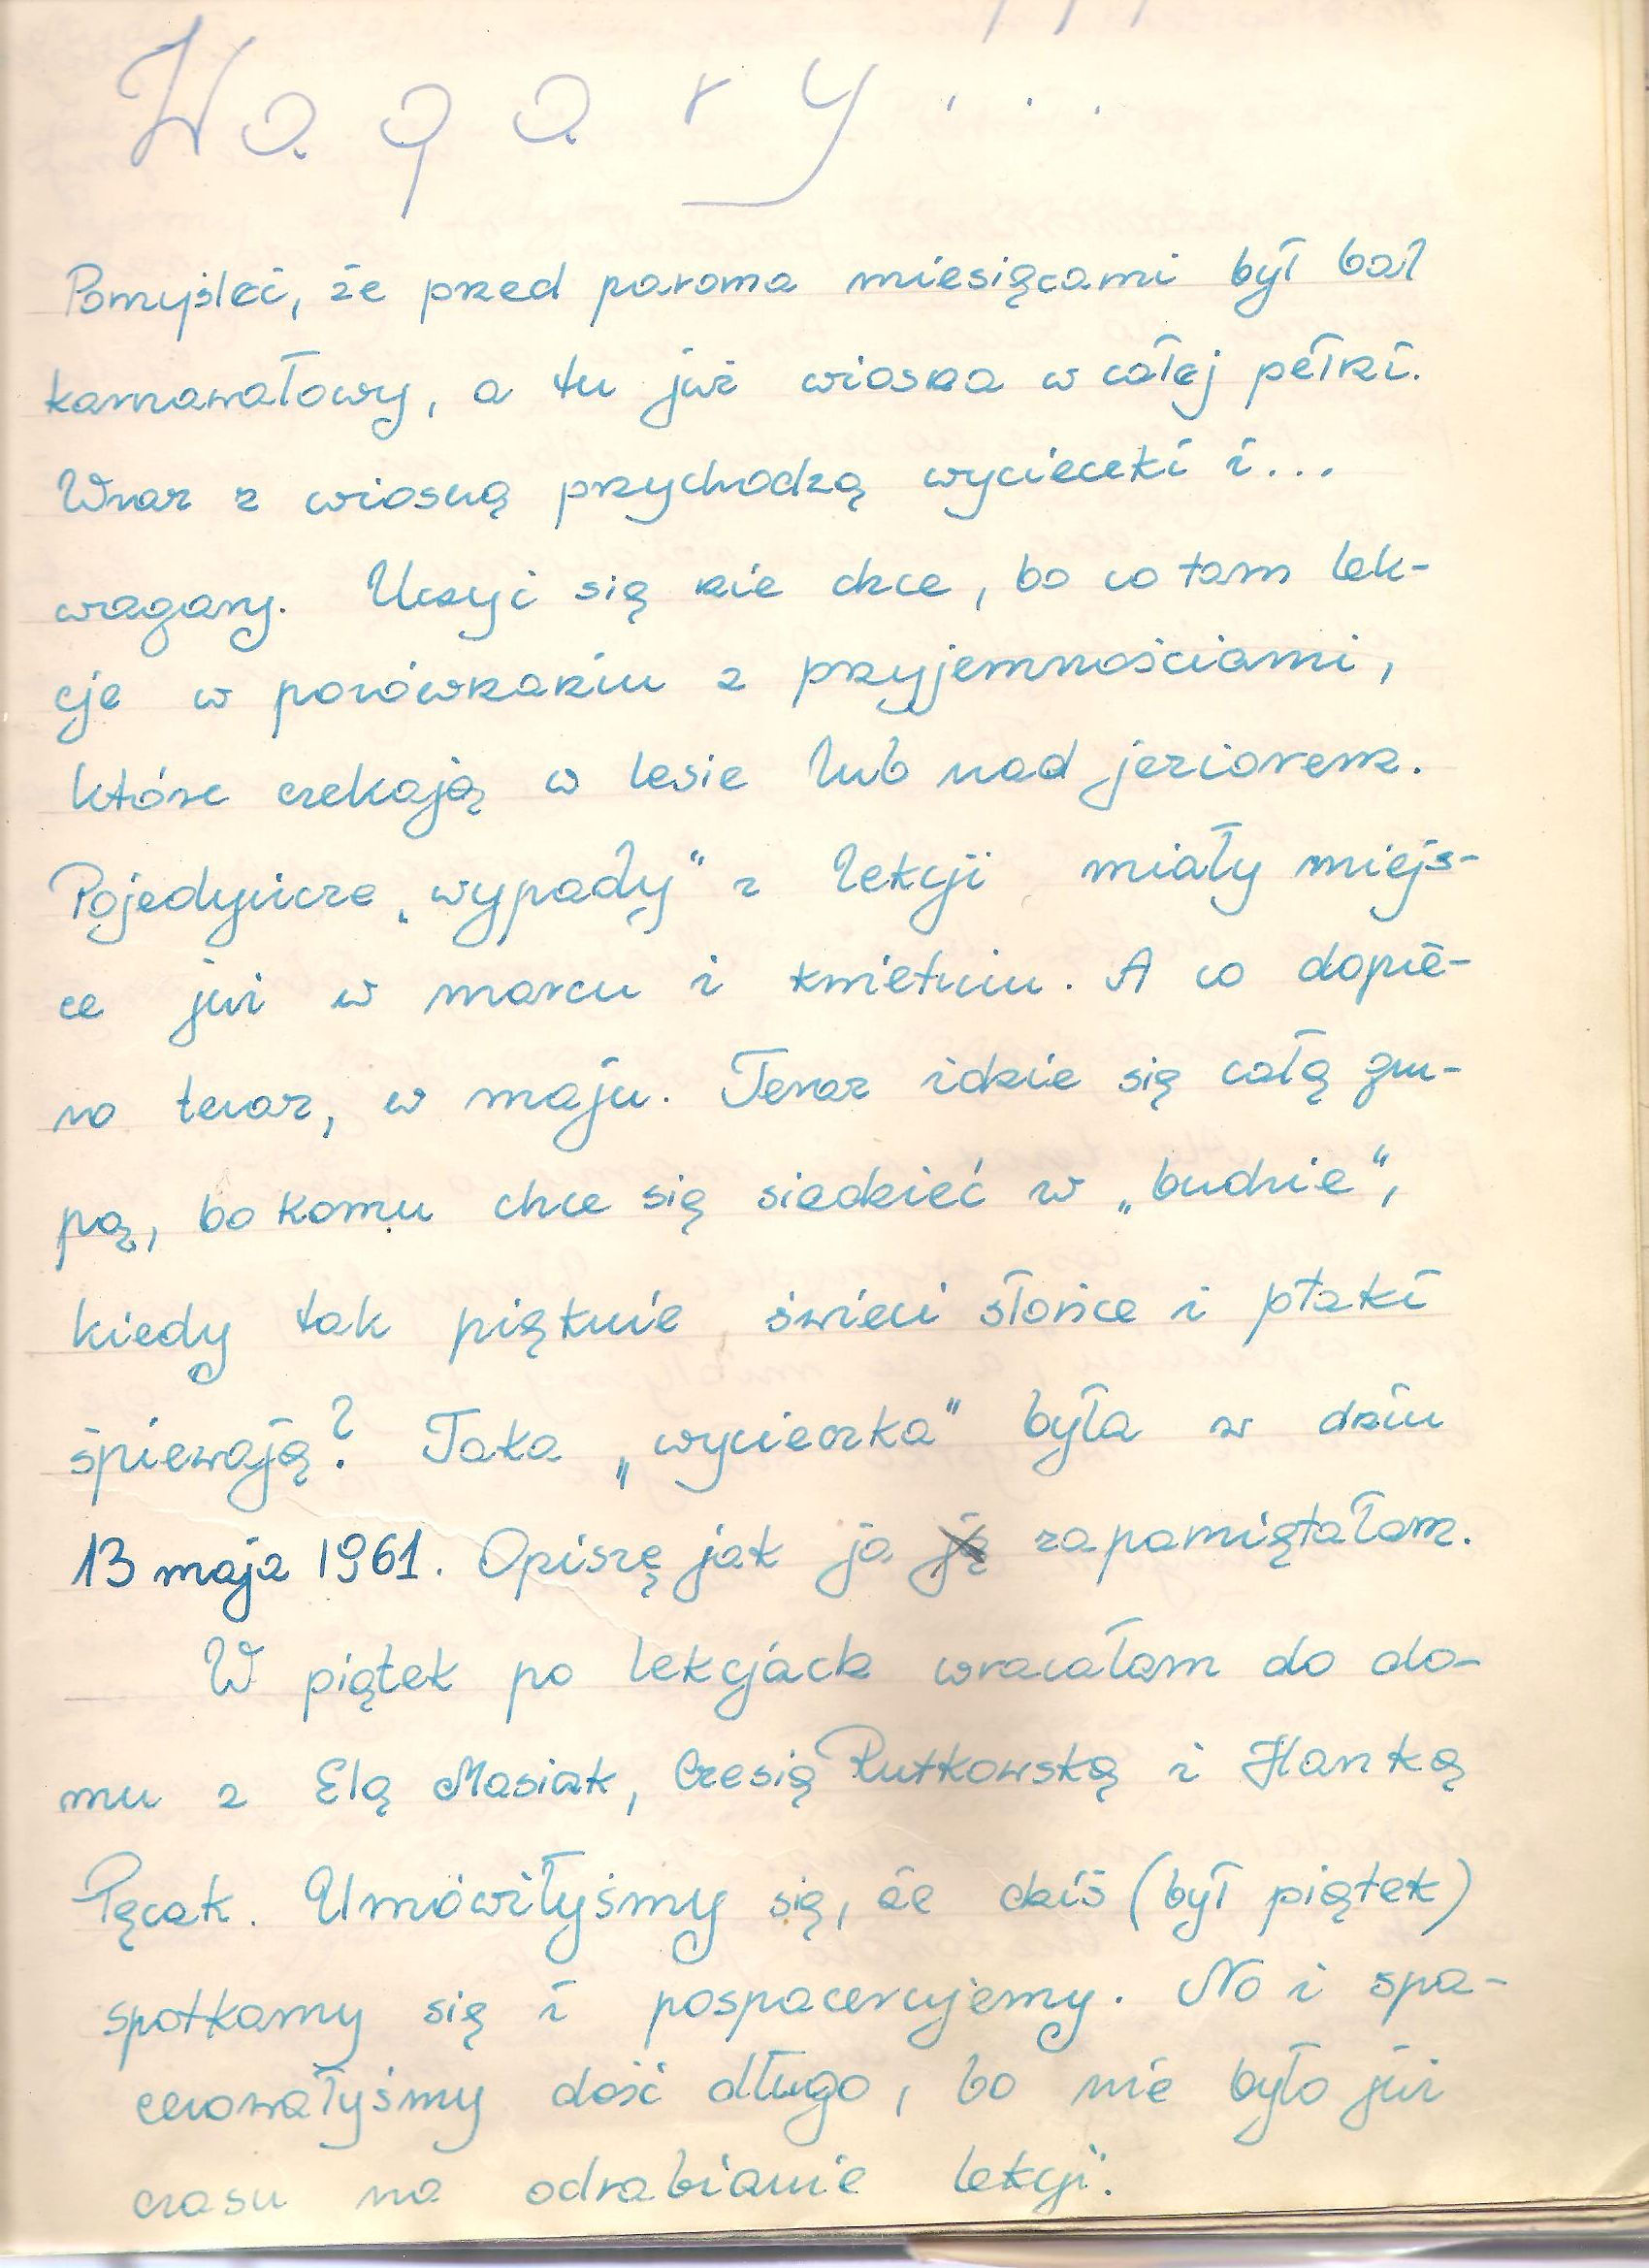 Wagary...
Pomyśleć, że przed paroma miesiącami był bal
karnawałowy, a tu już wiosna w całej pełni.
Wraz z wiosną przychodzą wycieczki i...
wagary. Uczyć się nie chce, bo co tam lek-
cje w porównaniu z przyjemnościami,
które czekają w lesie lub nad jeziorem.
Pojedyncze „wypady" z lekcji miały miejs-
ce już w marcu i kwietniu. A co dopie-
ro teraz, w maju. Teraz idzie się całą gru-
pą, bo komu chce się siedzieć w „budzie",
kiedy tak pięknie świeci słońce i ptaki
śpiewają? Taka „wycieczka" była w dniu
13 maja 1961. Opiszę jak ja ją zapamiętałam.
W piątek po lekcjach wracałam do do-
mu z Elą Masiak, Czesią Rutkowską i Hanką
Pęcak. Umówiłyśmy się, że dziś (był piątek)
spotkamy się i pospacerujemy. No i spa-
cerowałyśmy dość długo, bo nie było już
czasu na odrabianie lekcji.